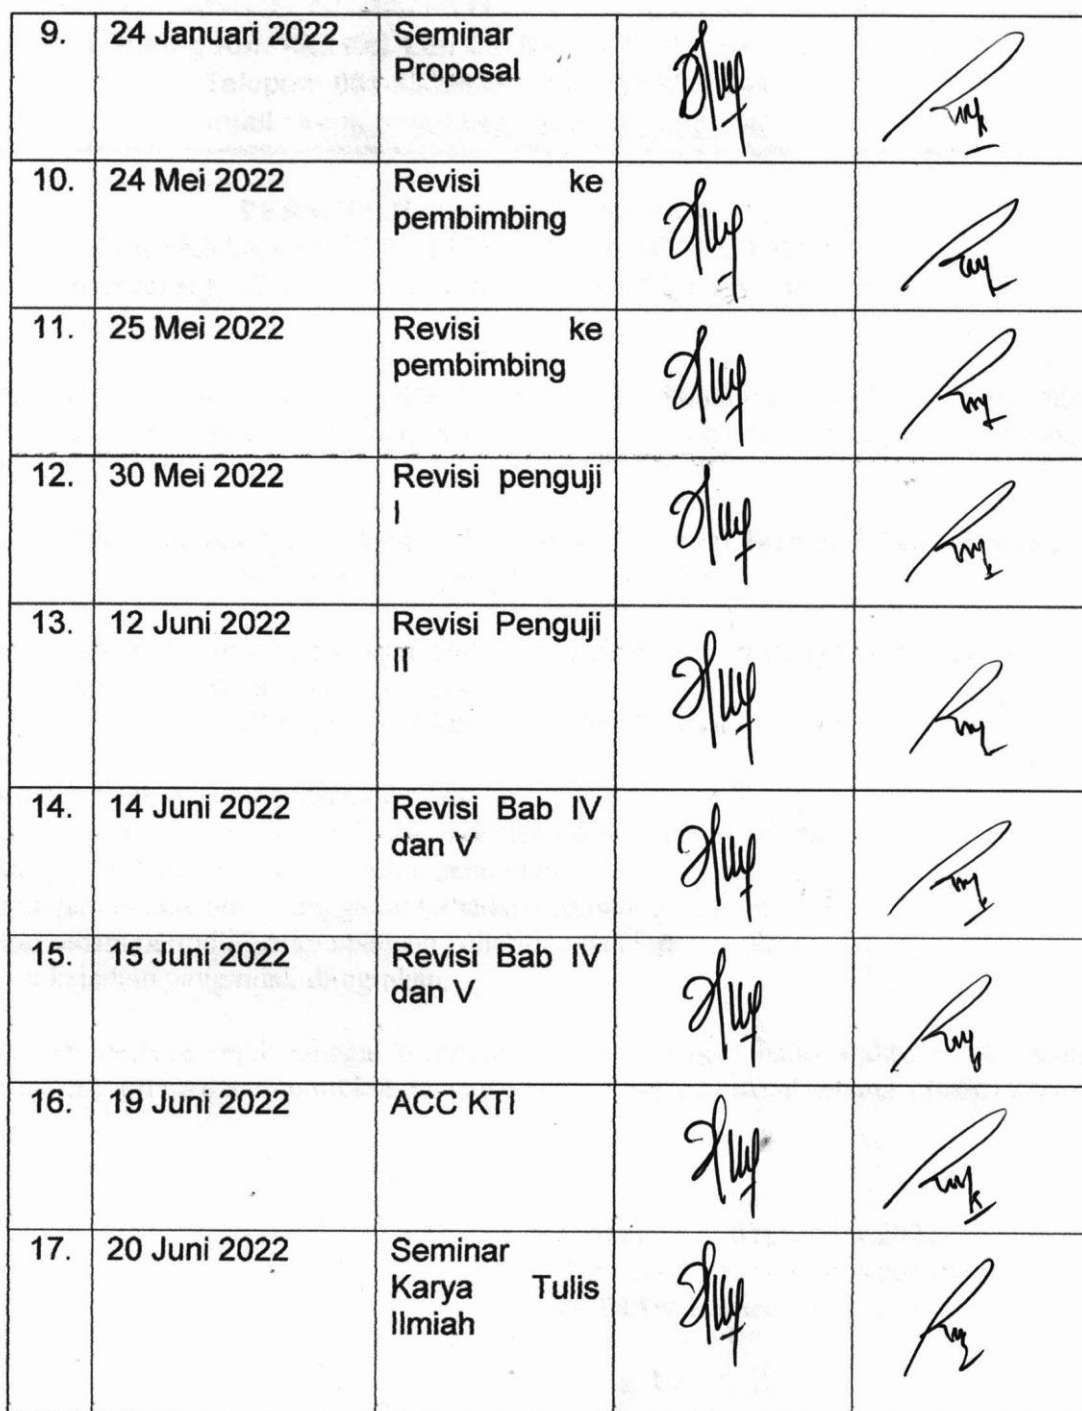 9. 24 Januari 2022 Seminar
Proposal
10. 24 Mei 2022 Revisi ke
pembimbing
11. 25 Mei 2022 Revisi ke
pembimbing
12. 30 Mei 2022 Revisi penguji
I
13. 12 Juni 2022 Revisi Penguji
II
14. 14 Juni 2022 Revisi Bab IV
dan V
15. 15 Juni 2022 Revisi Bab IV
dan V
16. 19 Juni 2022 ACC KTI
17. 20 Juni 2022 Seminar
Karya Tulis
Ilmiah